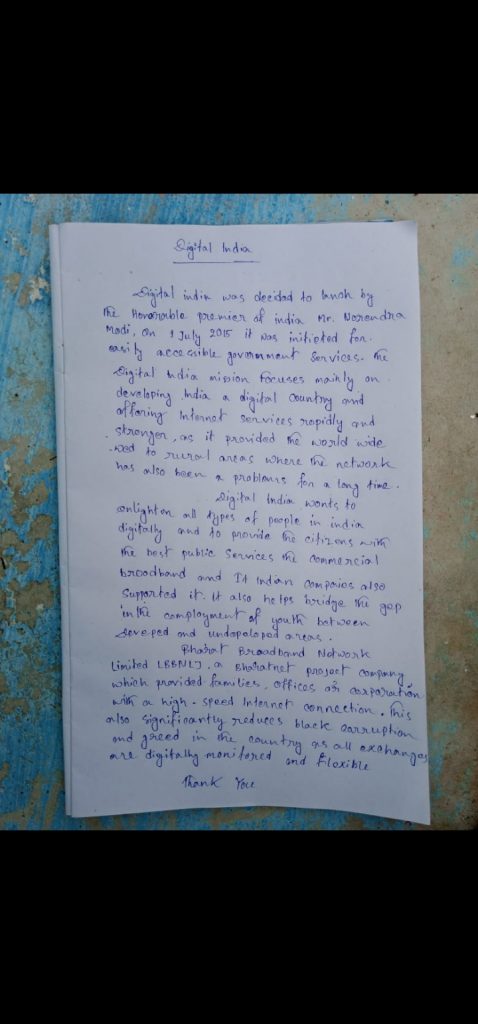 Digital India
Digital india was decided to lanch by
the Honorable premier of india Mr. Narendra
Modi, on 1 July 2015 it was initieted for
easily accessible government services. the
Digital India mission focuses mainly on
developing India a digital country and
offering Internet services rapidly and
stronger, as it provided the world wide
wed to rural areas where the network
has also been a problams for a long time.
Digital India wonts to
enlighton all types of people in india
digitally and to provide the citizens with
the best public services the commercial
broadband and It Indian compaies also
Supported it. It also helps bridge the gap
in the employment of youth between
deveped and undopaloped areas.
Bharat Broadband Network
Limited LBBNLJ, a Bharatnet project company
which provided families, offices or corporation
with a high-speed Internet connection. This
also significantly reduces black corruption
and greed in the country as all exchanges
are digitally monitored and flexible
Thank You